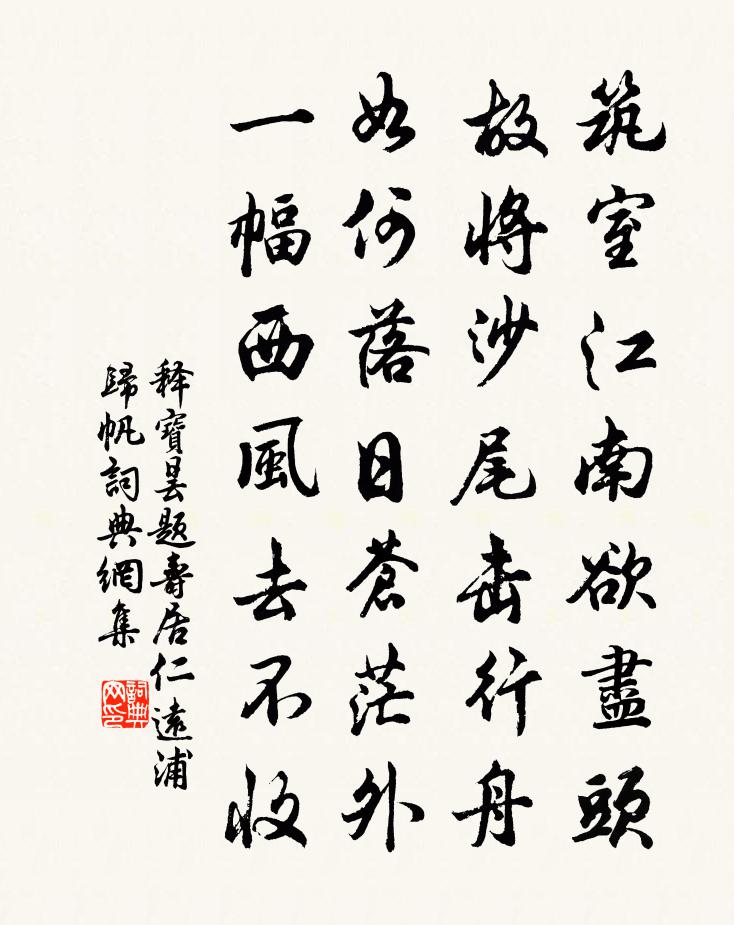 筑室江南欲盡頭
故將沙尾击行舟
如何落日蒼茫外
一幅西風去不收
释寶昙題壽居仁遠浦
歸帆詞典網集
詞典网印